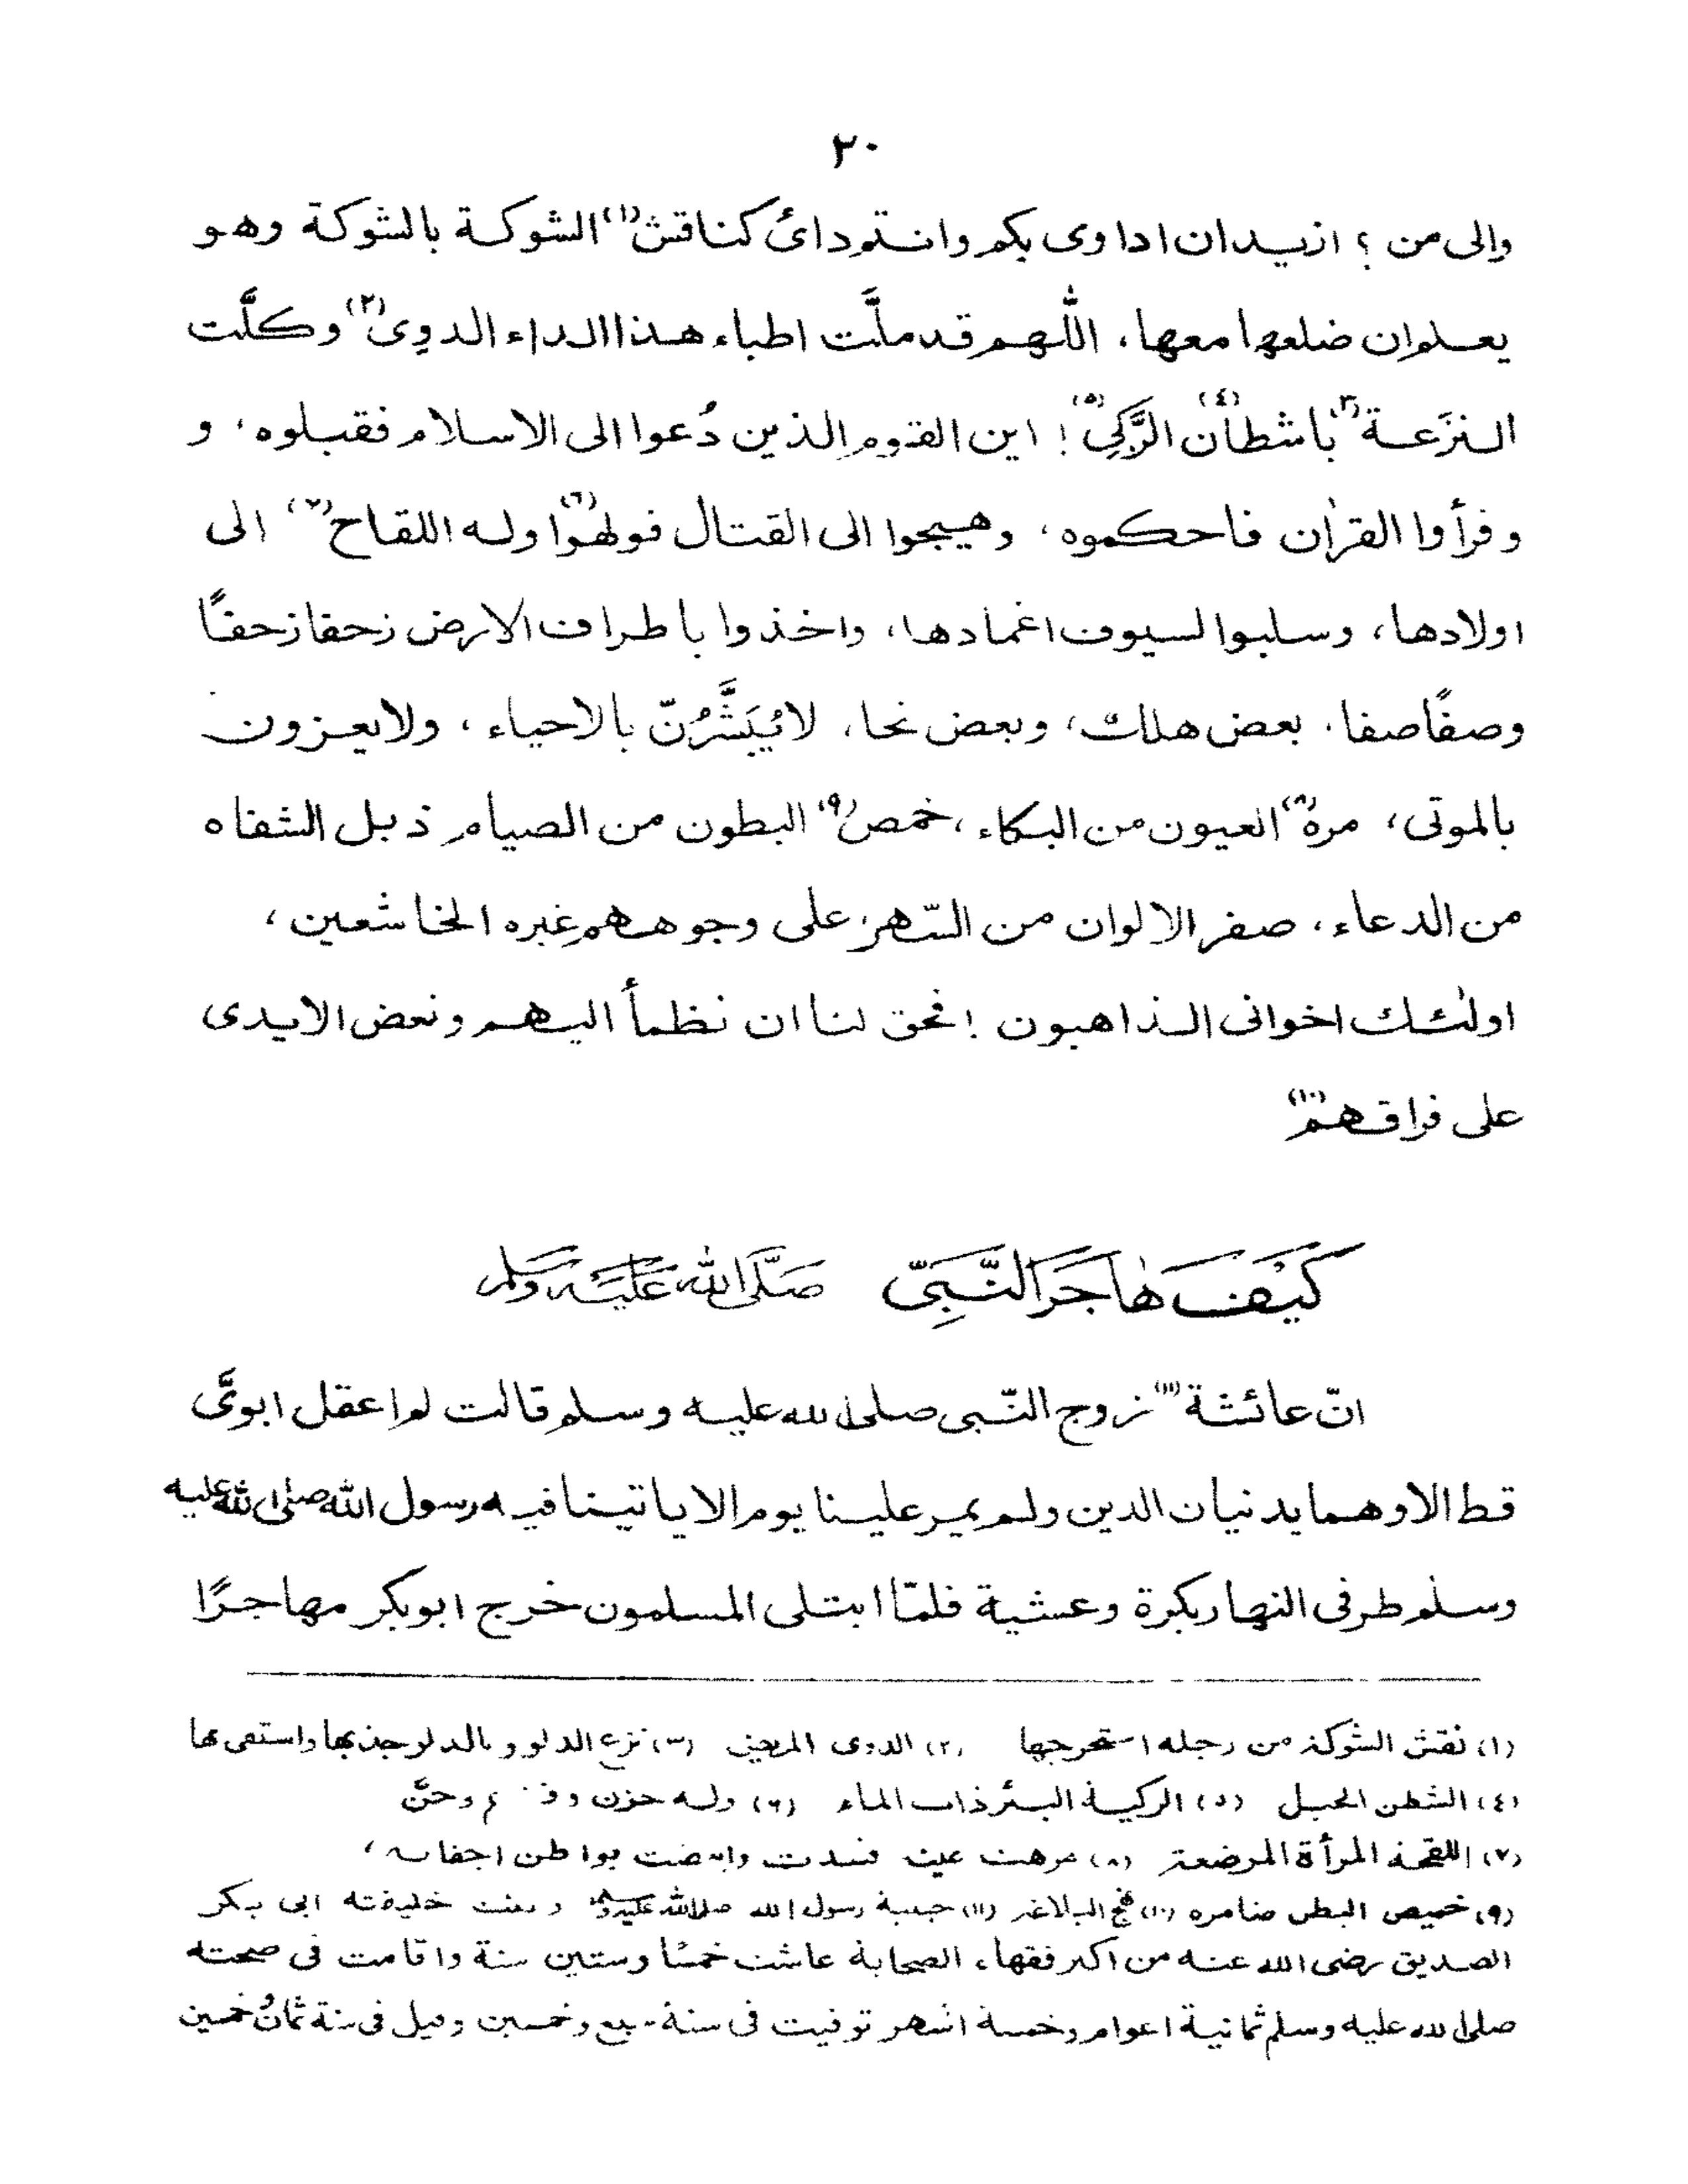 ٢٠
والى من ؟ اريد ان اداوى بكم وانتم دائ كناقش (١) الشوكة بالشوكة وهو
يعلم ان ضلعها معها، اللّٰهم قد ملَّت اطباء هذا الداء الدوِى (٢) وكلَّت
النزَعة (٣) باشطان (٤) الرَّكِى (٥) ! اين القوم الذين دُعوا الى الاسلام فقبلوه، و
وقرأوا القرٰان فاحكموه، وهيجوا الى القتال فولهوا (٦) وله اللقاح (٧) الى
اولادها، وسلبوا السيوف اغمادها، واخذوا باطراف الارض زحفا زحفًا
وصفًا صفا. بعض هلك، وبعض نجا، لا يُبَشَّرُنّ بالاحياء، ولا يعزون
بالموتى، مره (٨) العيون من البكاء، خمص (٩) البطون من الصيام ذبل الشفاه
من الدعاء، صفر الالوان من السّهر، على وجوههم غبره الخاشعين،
اولٰئك اخوانى الذاهبون ! فحق لنا ان نظمأ اليهم ونعض الايدى
على فراقهم (١٠)
كَيْفَ هٰاجَرَ النَّبِىّ صَلَّى اللّٰه عَلَيْهِ وَسَلَّم
انّ عائشة (١١) زوج النّبى صلى الله عليه وسلم قالت لم اعقل ابوىَّ
قط الا وهما يدنيان الدين ولم يمر علينا يوم الا ياتينا فيه رسول الله صلى الله عليه
وسلم طرفى النهار بكرة وعشية فلمّا ابتلى المسلمون خرج ابوبكر مهاجرًا
(١) نقش الشوكة من رجله استخرجها (٢) الدوى المريض (٣) نزع الدلو و بالدلو جذبها واستقى بها
(٤) الشطن الحبل (٥) الركية البئر ذات الماء (٦) وله حزن و وحنَّ
(٧) اللقحة المرأة المرضعة (٨) مرهت عينه فسدت وابيضت بواطن اجفانه،
(٩) خميص البطن ضامره (١٠) نهج البلاغة (١١) حبيبة رسول الله صلى الله عليه وسلم وبنت خليفته ابى بكر
الصديق رضى الله عنه من اكبر فقهاء الصحابة عاشت خمسًا وستين سنة واقامت فى صحبته
صلى الله عليه وسلم ثمانية اعوام وخمسة اشهر توفيت فى سنة سبع وخمسين وقيل فى سنة ثمان وخمسين